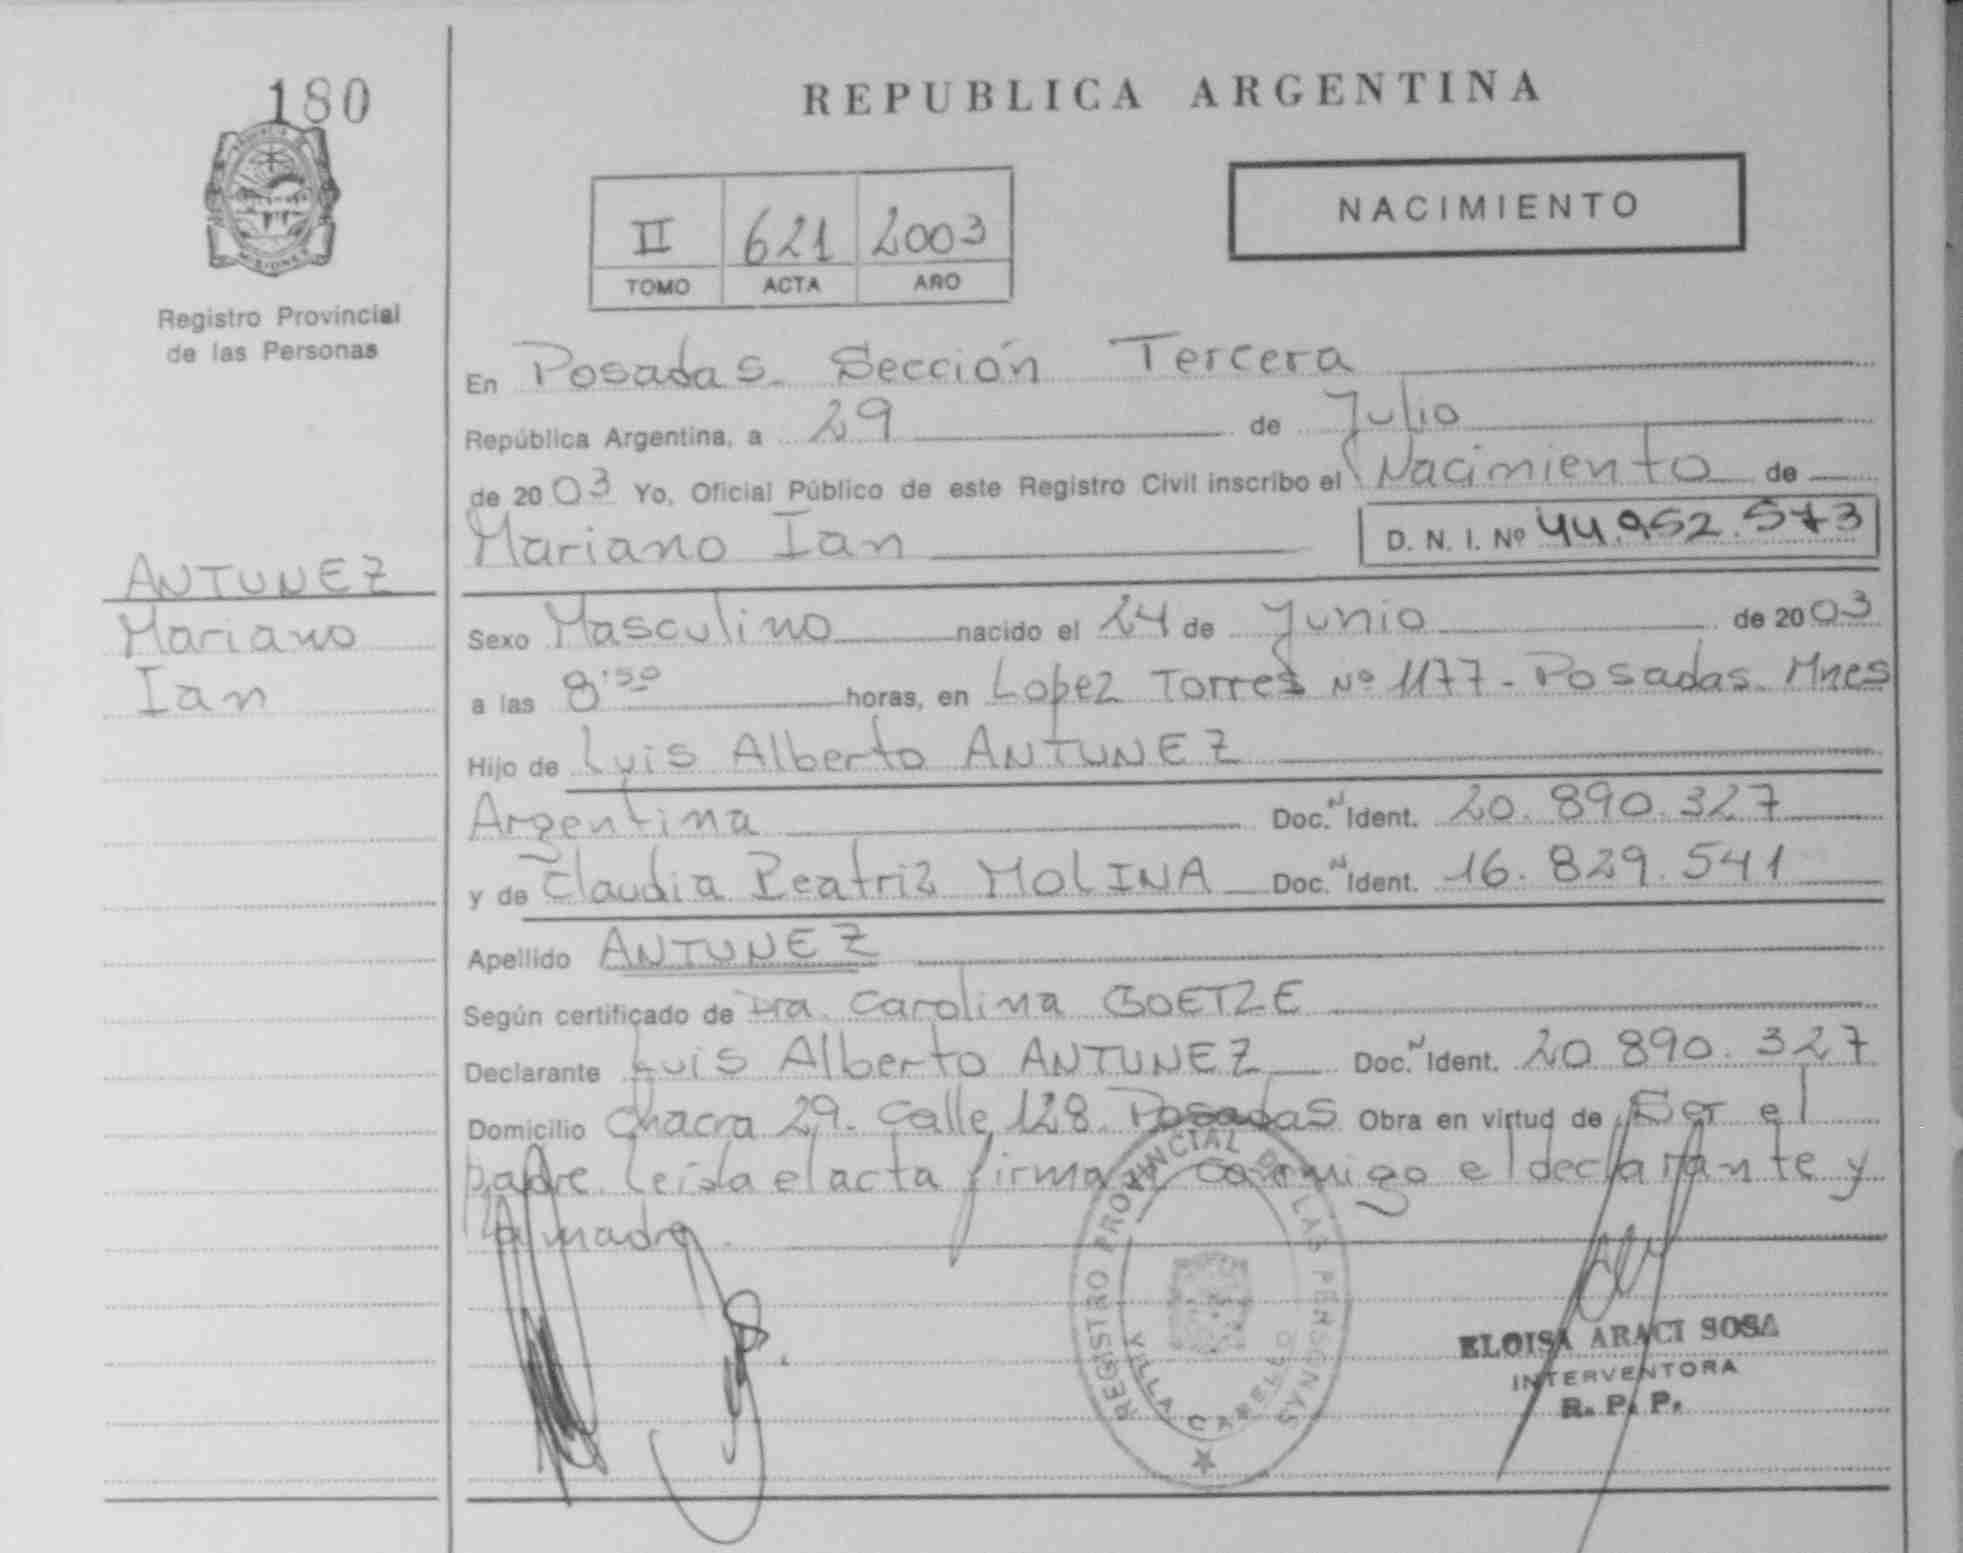 180
REPUBLICA ARGENTINA
NACIMIENTO
II 621 2003
TOMO ACTA AÑO
Registro Provincial
de las Personas
En Posadas Sección Tercera
República Argentina, a 29 de Julio
de 2003 Yo, Oficial Público de este Registro Civil inscribo el Nacimiento de
Mariano Ian D. N. I. Nº 44.952.573
ANTUNEZ
Mariano
Ian
Sexo Masculino nacido el 24 de Junio de 2003
a las 8:50 horas, en Lopez Torres Nº 1177 - Posadas. Mnes
Hijo de Luis Alberto ANTUNEZ
Argentina Doc. N Ident. 20.890.327
y de Claudia Beatriz MOLINA Doc. N Ident. 16.829.541
Apellido ANTUNEZ
Según certificado de Dra. Carolina GOETZE
Declarante Luis Alberto ANTUNEZ Doc. N Ident. 20.890.327
Domicilio Chacra 29. Calle 128. Posadas Obra en virtud de Ser el
padre. Leída el acta firman conmigo el declarante y
la madre.
REGISTRO PROVINCIAL DE LAS PERSONAS
VILLA CABELLO
ELOISA ARACI SOSA
INTERVENTORA
R. P. P.